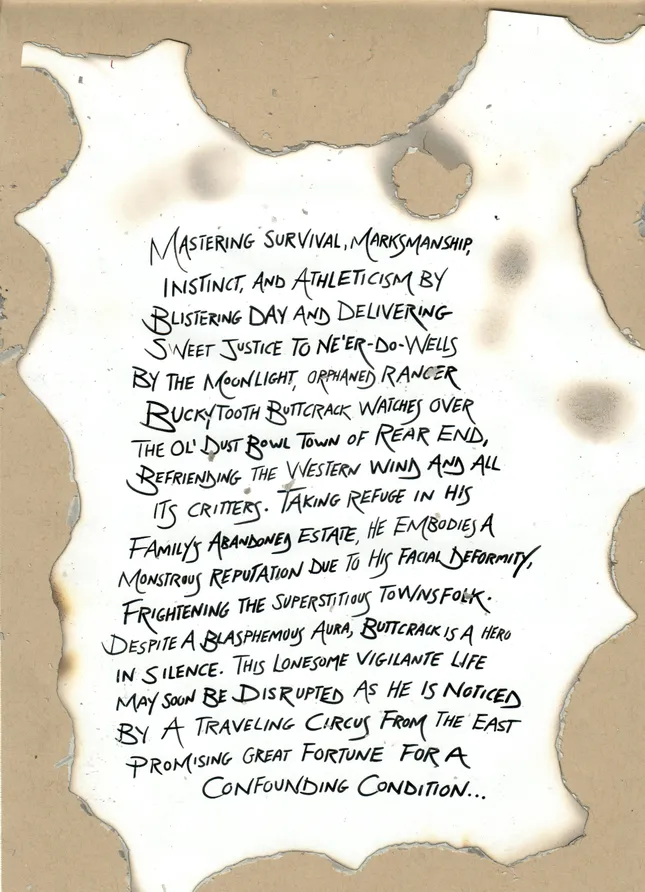 Mastering Survival, Marksmanship,
Instinct, and Athleticism by
Blistering Day and Delivering
Sweet Justice to Ne'er-Do-Wells
by the Moonlight, Orphaned Ranger
Buckytooth Buttcrack Watches Over
the Ol' Dust Bowl Town of Rear End,
Befriending the Western Wind and All
its Critters. Taking Refuge in His
Family's Abandoned Estate, He Embodies A
Monstrous Reputation Due to His Facial Deformity,
Frightening the Superstitious Townsfolk.
Despite A Blasphemous Aura, Buttcrack is A Hero
in Silence. This Lonesome Vigilante Life
May Soon Be Disrupted As He Is Noticed
By A Traveling Circus From The East
Promising Great Fortune For A
Confounding Condition...